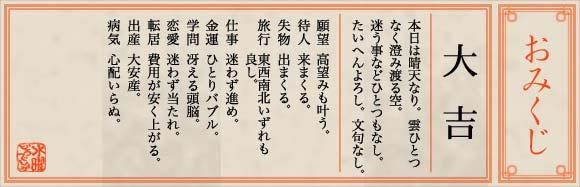 おみくじ
大吉
本日は晴天なり。雲ひとつ
なく澄み渡る空。
迷う事などひとつもなし。
たいへんよろし。文句なし。
願望 高望みも叶う。
待人 来まくる。
失物 出まくる。
旅行 東西南北いずれも
良し。
仕事 迷わず進め。
金運 ひとりバブル。
学問 冴える頭脳。
恋愛 迷わず当たれ。
転居 費用が安く上がる。
出産 大安産。
病気 心配いらぬ。